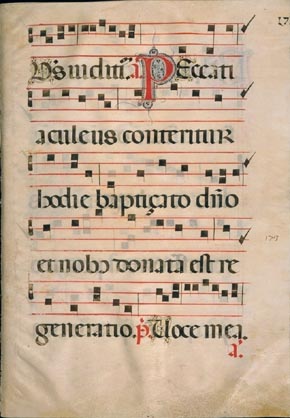 Dñs induit. a Peccati
aculeus conteritur
hodie baptiçato dño
et nobis donata est re
generatio. p. Uoce mea.
a.